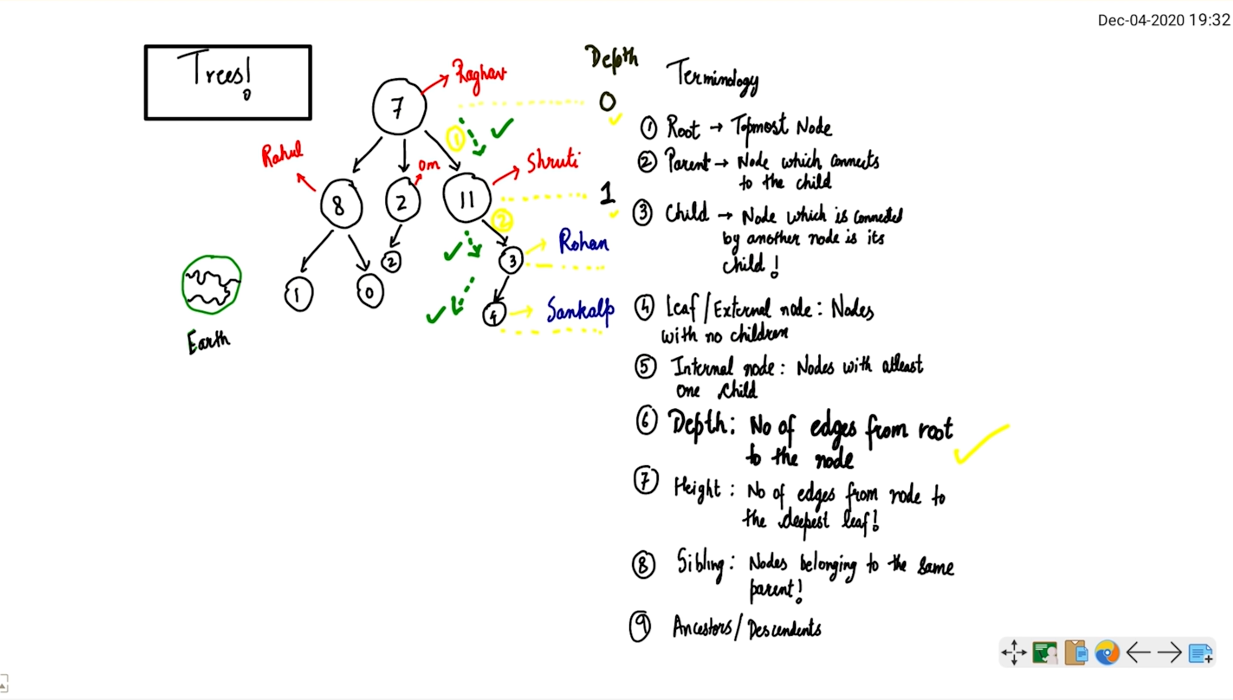 Dec-04-2020 19:32
Trees!
Depth
Raghav
7
0
1
Rahul
Om
Shruti
8
2
11
1
2
Rohan
2
3
1
0
4
Sankalp
Earth
Terminology
1 Root → Topmost Node
2 Parent → Node which connects
to the child
3 Child → Node which is connected
by another node is its
child!
4 Leaf/External node: Nodes
with no children
5 Internal node: Nodes with atleast
one child
6 Depth: No of edges from root
to the node
7 Height: No of edges from node to
the deepest leaf!
8 Sibling: Nodes belonging to the same
parent!
9 Ancestors/Descendents